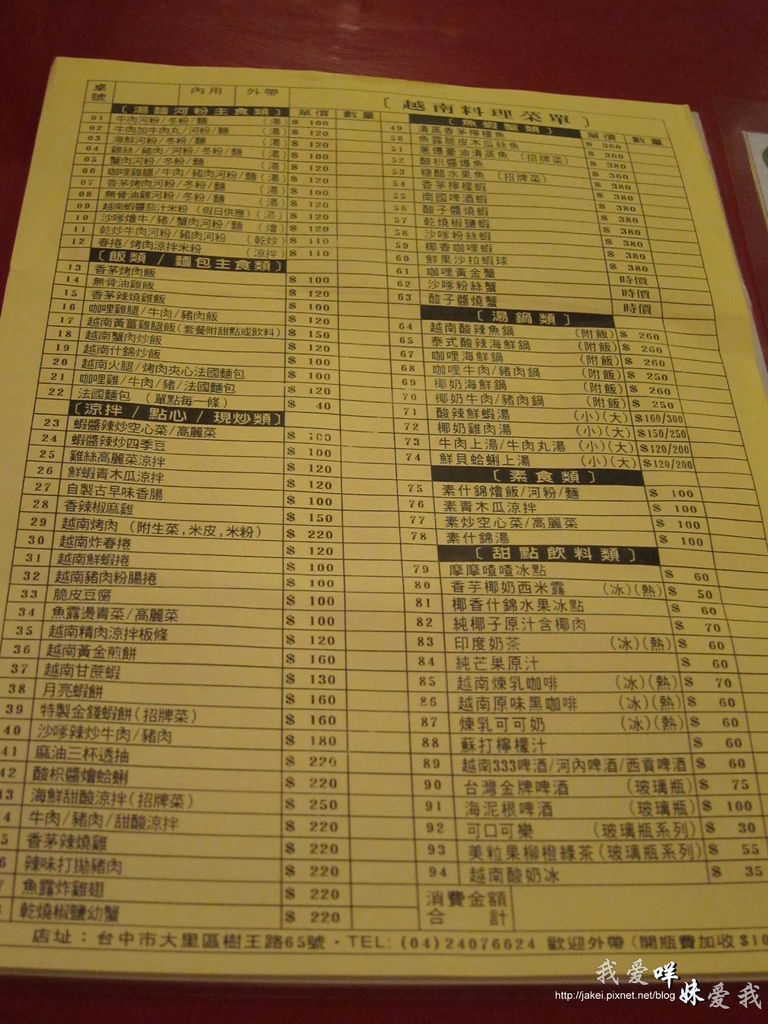 桌號 內用 外帶
〔越南料理菜單〕
〔湯麵河粉主食類〕 單價 數量
01 牛肉河粉/冬粉/麵 (湯) $ 100
02 牛肉加牛肉丸/河粉/麵 (湯) $ 120
03 海鮮河粉/冬粉/麵 (湯) $ 120
04 雞絲/豬肉/河粉/冬粉/麵 (湯) $ 100
05 蟹肉河粉/冬粉/麵 (湯) $ 120
06 咖哩雞腿/牛肉/豬肉河粉/麵 (湯) $ 120
07 香茅烤肉河粉/冬粉/麵 $ 100
08 無骨油雞河粉/冬粉/麵 (湯) $ 120
09 越南蝦醬茄汁米粉 (假日供應) (湯) $ 120
10 沙嗲燴牛/豬/蟹肉河粉/麵 (燴) $ 120
11 乾炒牛肉河粉/豬肉河粉 (乾炒) $ 110
12 春捲/烤肉涼拌米粉 (涼拌) $ 110
〔飯類/麵包主食類〕
13 香茅烤肉飯 $ 100
14 無骨油雞飯 $ 120
15 香茅辣燒雞飯 $ 100
16 咖哩雞腿/牛肉/豬肉飯 $ 120
17 越南黃薑雞腿飯(套餐附甜點或飲料) $ 150
18 越南蟹肉炒飯 $ 120
19 越南什錦炒飯 $ 100
20 越南火腿/烤肉夾心法國麵包 $ 100
21 咖哩雞/牛肉/豬/法國麵包 $ 120
22 法國麵包 (單點每一條) $ 40
〔涼拌/點心/現炒類〕
23 蝦醬辣炒空心菜/高麗菜 $ 100
24 蝦醬辣炒四季豆 $ 100
25 雞絲高麗菜涼拌 $ 120
26 鮮蝦青木瓜涼拌 $ 120
27 自製古早味香腸 $ 100
28 香辣椒麻雞 $ 150
29 越南烤肉 (附生菜,米皮,米粉) $ 220
30 越南炸春捲 $ 120
31 越南鮮蝦捲 $ 100
32 越南豬肉粉腸捲 $ 100
33 脆皮豆腐 $ 100
34 魚露燙青菜/高麗菜 $ 100
35 越南精肉涼拌板條 $ 120
36 越南黃金煎餅 $ 160
37 越南甘蔗蝦 $ 130
38 月亮蝦餅 $ 160
39 特製金錢蝦餅(招牌菜) $ 160
40 沙嗲辣炒牛肉/豬肉 $ 180
41 麻油三杯透抽 $ 220
42 酸枳醬燴蛤蜊 $ 220
43 海鮮甜酸涼拌(招牌菜) $ 250
4 牛肉/豬肉/甜酸涼拌 $ 220
5 香茅辣燒雞 $ 220
6 辣味打拋豬肉 $ 220
7 魚露炸雞翅 $ 220
8 乾燒椒鹽幼蟹 $ 220
〔魚蝦蟹類〕 單價 數量
49 清蒸香茅檸檬魚 $ 360
50 魚露脆皮木瓜絲魚 $ 360
51 蔥爆豪油清蒸魚 (招牌菜) $ 380
52 酸枳醬爆魚 $ 380
53 糖醋水果魚 (招牌菜) $ 380
54 香茅檸檬蝦 $ 380
55 南國啤酒蝦 $ 380
56 酸子醬燒蝦 $ 380
57 乾燒椒鹽蝦 $ 380
58 沙嗲粉絲蝦 $ 380
59 椰香咖哩蝦 $ 380
60 鮮果沙拉蝦球 $ 380
61 咖哩黃金蟹 時價
62 沙嗲粉絲蟹 時價
63 酸子醬燒蟹 時價
〔湯鍋類〕
64 越南酸辣魚鍋 (附飯) $ 260
65 泰式酸辣海鮮鍋 (附飯) $ 260
67 咖哩海鮮鍋 (附飯) $ 260
68 咖哩牛肉/豬肉鍋 (附飯) $ 250
69 椰奶海鮮鍋 (附飯) $ 260
70 椰奶牛肉/豬肉鍋 (附飯) $ 250
71 酸辣鮮蝦湯 (小)(大) $160/300
72 椰奶雞肉湯 (小)(大) $150/250
73 牛肉上湯/牛肉丸湯 (小)(大) $120/200
74 鮮貝蛤蜊上湯 (小)(大) $120/200
〔素食類〕
75 素什錦燴飯/河粉/麵 $ 100
76 素青木瓜涼拌 $ 100
77 素炒空心菜/高麗菜 $ 100
78 素什錦湯 $ 100
〔甜點飲料類〕
79 摩摩喳喳冰點 $ 60
80 香芋椰奶西米露 (冰)(熱) $ 50
81 椰香什錦水果冰點 $ 60
82 純椰子原汁含椰肉 $ 70
83 印度奶茶 (冰)(熱) $ 60
84 純芒果原汁 $ 60
85 越南煉乳咖啡 (冰)(熱) $ 70
86 越南原味黑咖啡 (冰)(熱) $ 60
87 煉乳可可奶 (冰)(熱) $ 60
88 蘇打檸檬汁 $ 60
89 越南333啤酒/河內啤酒/西貢啤酒 $ 60
90 台灣金牌啤酒 (玻璃瓶) $ 75
91 海泥根啤酒 (玻璃瓶) $ 100
92 可口可樂 (玻璃瓶系列) $ 30
93 美粒果柳橙綠茶(玻璃瓶系列) $ 55
94 越南酸奶冰 $ 35
消費金額合計
店址:台中市大里區樹王路65號·TEL:(04)24076624 歡迎外帶 (開瓶費加收$10
我爱咩妹爱我
http://jakei.pixnet.net/blog